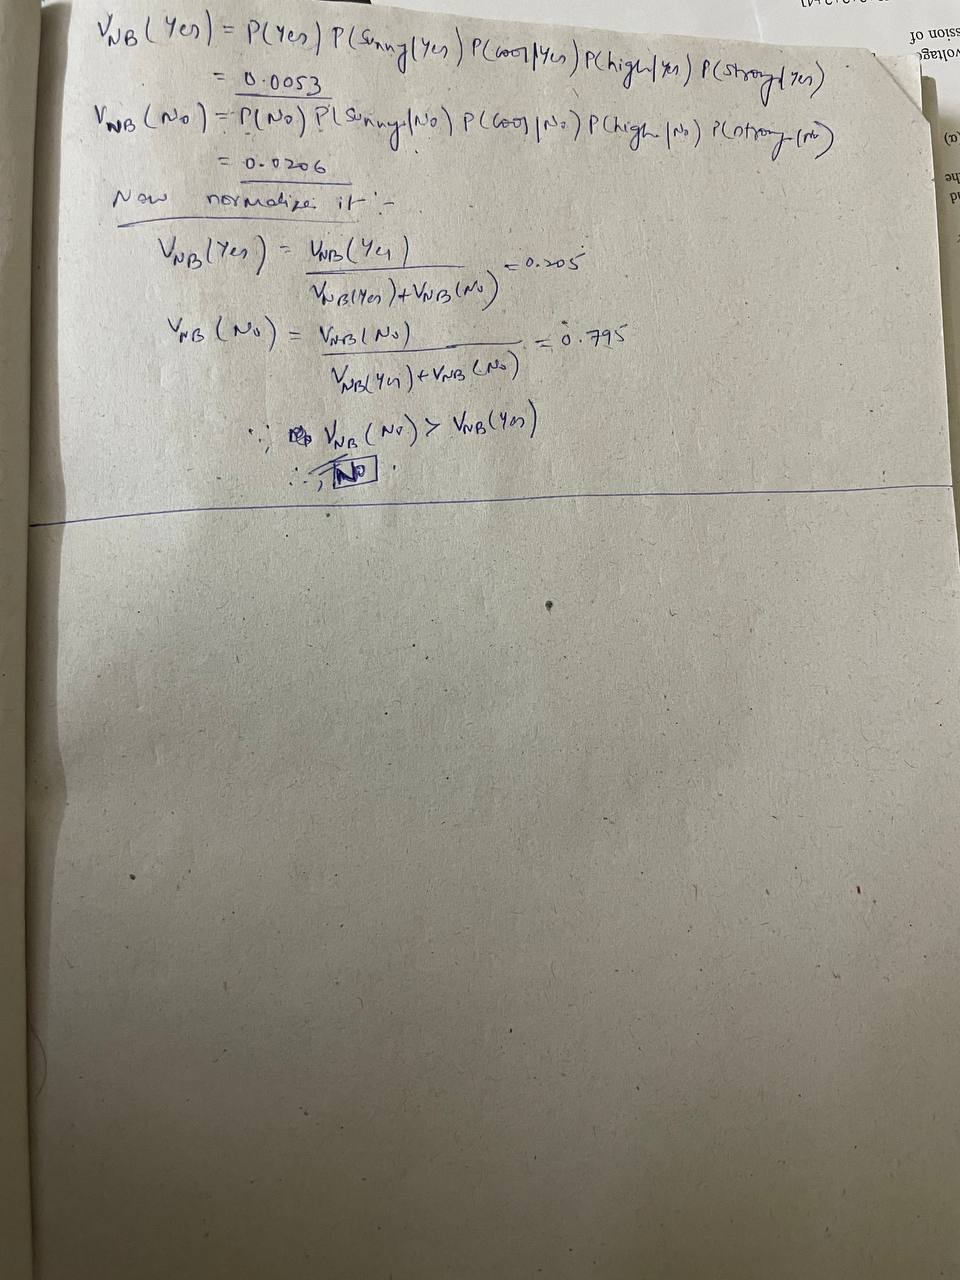 V_NB (Yes) = P(Yes) P(Sunny|Yes) P(cool|Yes) P(high|Yes) P(strong|Yes)
= 0.0053
V_NB (No) = P(No) P(Sunny|No) P(cool|No) P(high|No) P(strong|No)
= 0.0206
Now normalize it :-
V_NB(Yes) = V_NB(Yes) / V_NB(Yes)+V_NB(No) = 0.205
V_NB (No) = V_NB(No) / V_NB(Yes)+V_NB(No) = 0.795
∵, V_NB (No) > V_NB(Yes)
∴, No.
ssion of
voltage
(a)